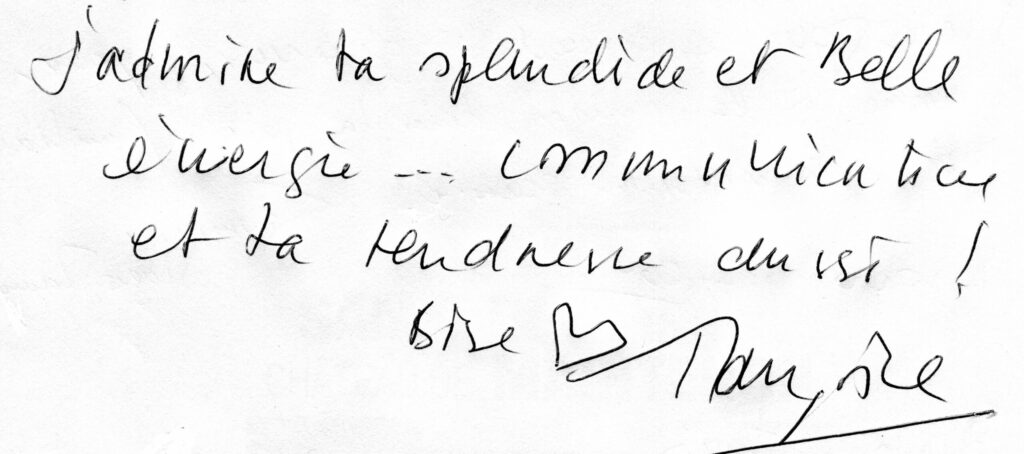 j'admire ta splendide et Belle
énergie ... communication
et ta tendresse aussi !
Bise